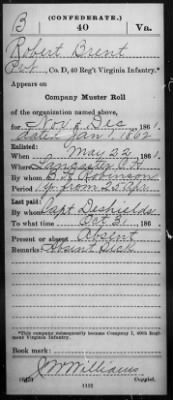 B (CONFEDERATE.) Va.
40
Robert Brent
Pvt, Co. D, 40 Reg't Virginia Infantry.*
Appears on
Company Muster Roll
of the organization named above,
for Nov & Dec, 1861.
dated Jan 1, 1862
Enlisted:
When May 22, 1861.
Where Lancaster C.H.
By whom B. H. Robinson
Period 1 yr from 25 Apr
Last paid:
By whom Capt Deshields
To what time Oct 31, 186
Present or absent Absent
Remarks: Absent Sick
*This company subsequently became Company I, 40th Regiment Virginia Infantry.
Book mark:
J W Williams
(642) Copyist.